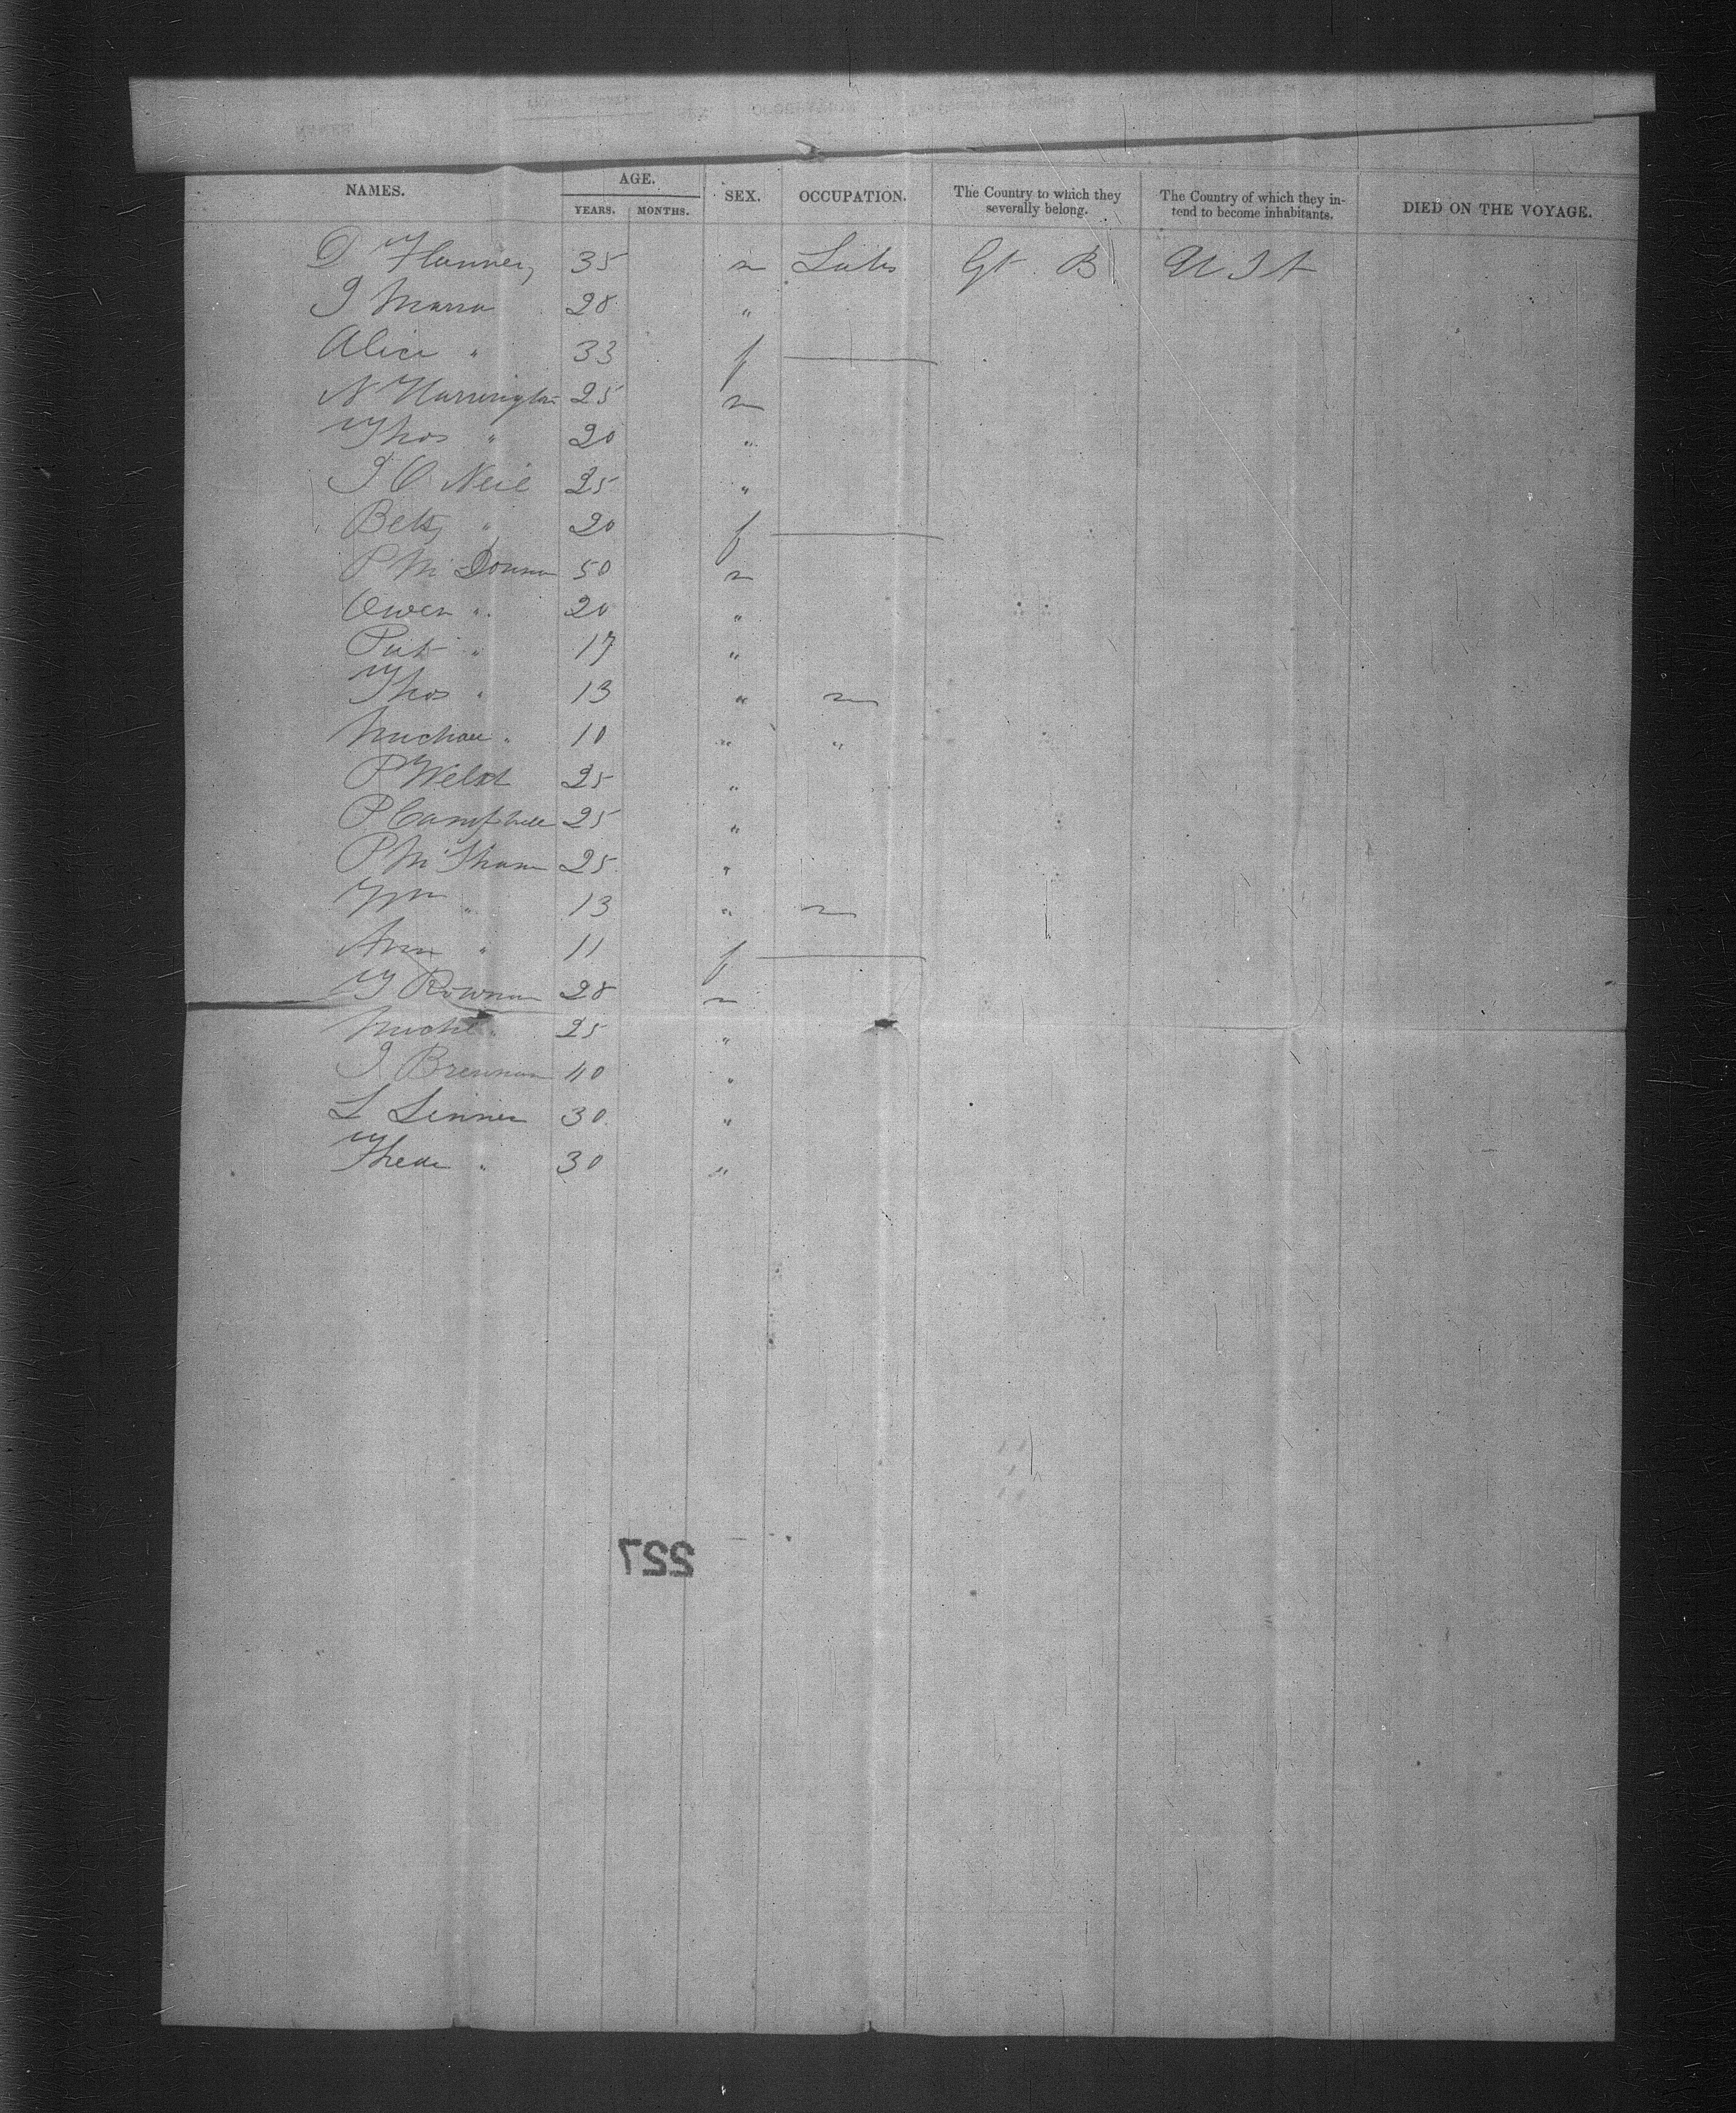 NAMES. AGE. SEX. OCCUPATION. The Country to which they severally belong. The Country of which they intend to become inhabitants. DIED ON THE VOYAGE.
YEARS. MONTHS.
D Flannery 35 m Labr Gt B U St
J Marra 28 "
Alice " 33 f
N Harrington 25 m
Thos " 20 "
J O Neil 25 "
Betsy " 20 f
P Mc Donna 50 m
Owen " 20 "
Pat " 17 "
Thos " 13 "
Michae " 10 " "
P Welsh 25 "
P Campbell 25 "
P Mc 25 "
Wm " 13 "
Ann " 11 f
T Rownan 28 m
Michl " 25 "
J Brennan 40 "
L Linner 30 "
" 30 "
227